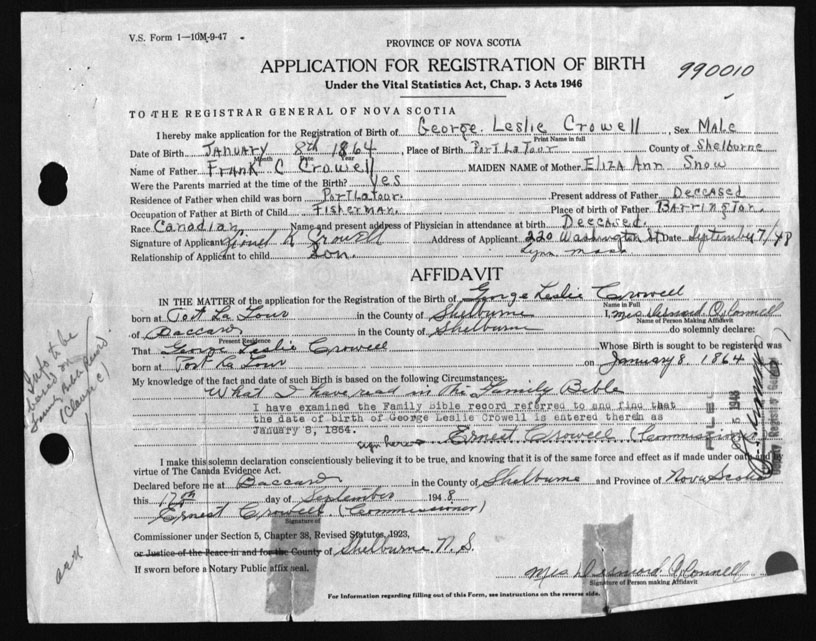 V.S. Form 1—10M-9-47
PROVINCE OF NOVA SCOTIA
APPLICATION FOR REGISTRATION OF BIRTH
990010
Under the Vital Statistics Act, Chap. 3 Acts 1946
TO THE REGISTRAR GENERAL OF NOVA SCOTIA
I hereby make application for the Registration of Birth of George Leslie Crowell, Sex Male
Print Name in full
Date of Birth January 8th 1864, Place of Birth Port La Tour County of Shelburne
Month Date Year
Name of Father Frank C Crowell MAIDEN NAME of Mother Eliza Ann Snow
Were the Parents married at the time of the Birth? Yes
Residence of Father when child was born Port Latour. Present address of Father Deceased
Occupation of Father at Birth of Child Fisherman. Place of birth of Father Barrington.
Race Canadian Name and present address of Physician in attendance at birth Deceased.
Signature of Applicant Lionel R Crowell Address of Applicant 220 Washington St Date September 7/48
Relationship of Applicant to child Son. Lynn Mass
AFFIDAVIT
IN THE MATTER of the application for the Registration of the Birth of George Leslie Crowell
Name in Full
born at Port La Tour in the County of Shelburne I, Mrs Desmond O'Connell
Name of Person Making Affidavit
of Baccaro in the County of Shelburne do solemnly declare:
Present Residence
That George Leslie Crowell Whose Birth is sought to be registered was
born at Port La Tour on January 8, 1864
My knowledge of the fact and date of such Birth is based on the following Circumstances:
What I have read in the Family Bible
I have examined the Family Bible record referred to and find that
the date of birth of George Leslie Crowell is entered therein as
January 8, 1864.
sign here Ernest Crowell (Commissioner)
I make this solemn declaration conscientiously believing it to be true, and knowing that it is of the same force and effect as if made under oath and by
virtue of The Canada Evidence Act.
Declared before me at Baccaro in the County of Shelburne and Province of Nova Scotia
this 17th day of September 1948
Ernest Crowell (Commissioner)
Signature of
Commissioner under Section 5, Chapter 38, Revised Statutes, 1923,
or Justice of the Peace in and for the County of Shelburne N.S.
If sworn before a Notary Public affix seal.
Mrs Desmond O'Connell
Signature of Person making Affidavit
For Information regarding filling out of this Form, see instructions on the reverse side.
Info to be
based on
Family Bible Record
(Clause C)
FILED
1948